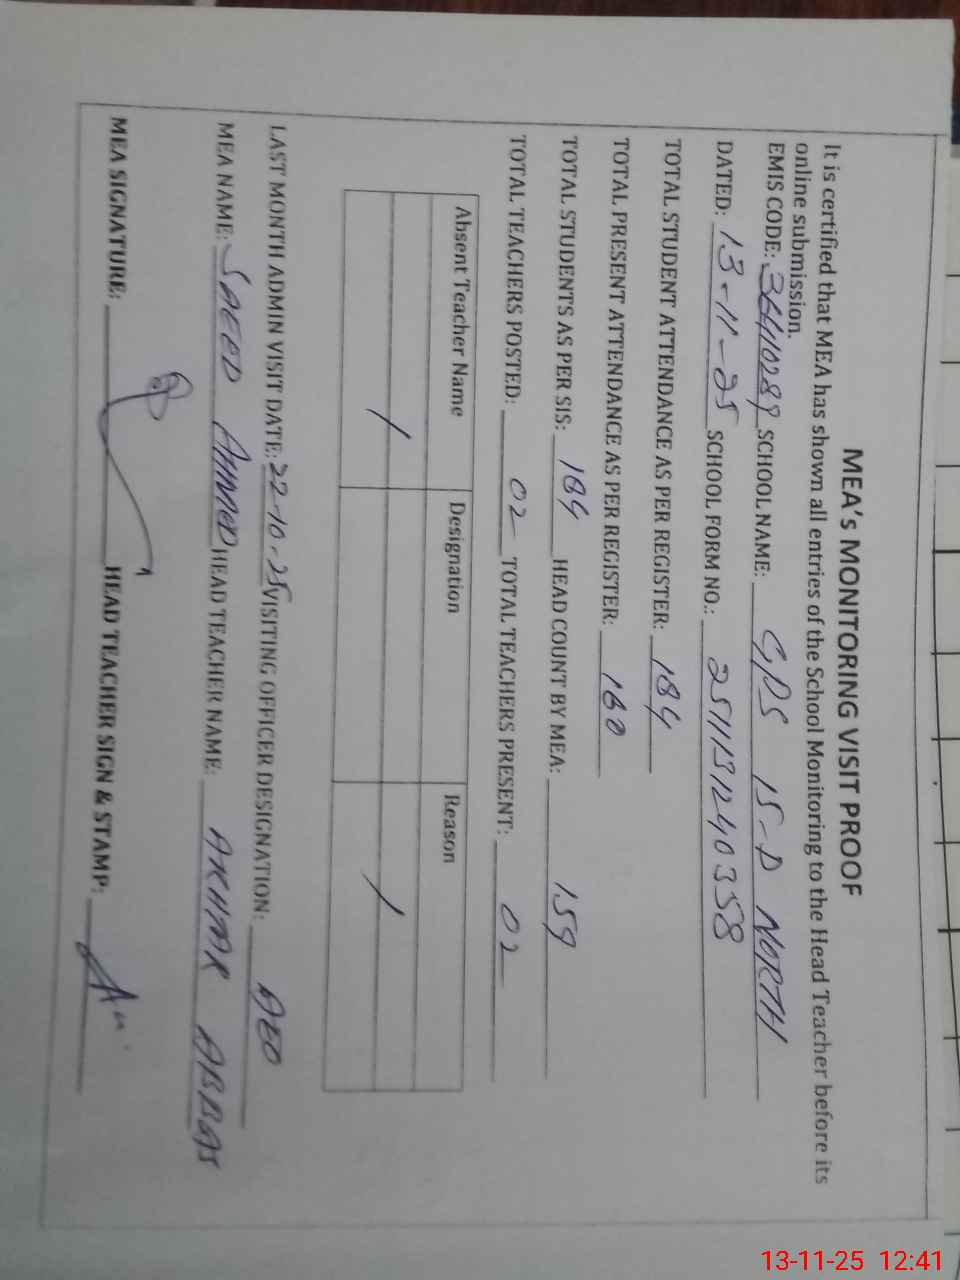 MEA's MONITORING VISIT PROOF
It is certified that MEA has shown all entries of the School Monitoring to the Head Teacher before its
online submission.
EMIS CODE: 38410289 SCHOOL NAME: GPS 15-D NORTH
DATED: 13-11-25 SCHOOL FORM NO.: 2511131240358
TOTAL STUDENT ATTENDANCE AS PER REGISTER: 184
TOTAL PRESENT ATTENDANCE AS PER REGISTER: 160
TOTAL STUDENTS AS PER SIS: 184 HEAD COUNT BY MEA: 159
TOTAL TEACHERS POSTED: 02 TOTAL TEACHERS PRESENT: 02
Absent Teacher Name Designation Reason
LAST MONTH ADMIN VISIT DATE: 22-10-25 VISITING OFFICER DESIGNATION: AEO
MEA NAME: SAEED AHMED HEAD TEACHER NAME: AKHTAR ABBAS
MEA SIGNATURE: HEAD TEACHER SIGN & STAMP:
13-11-25 12:41